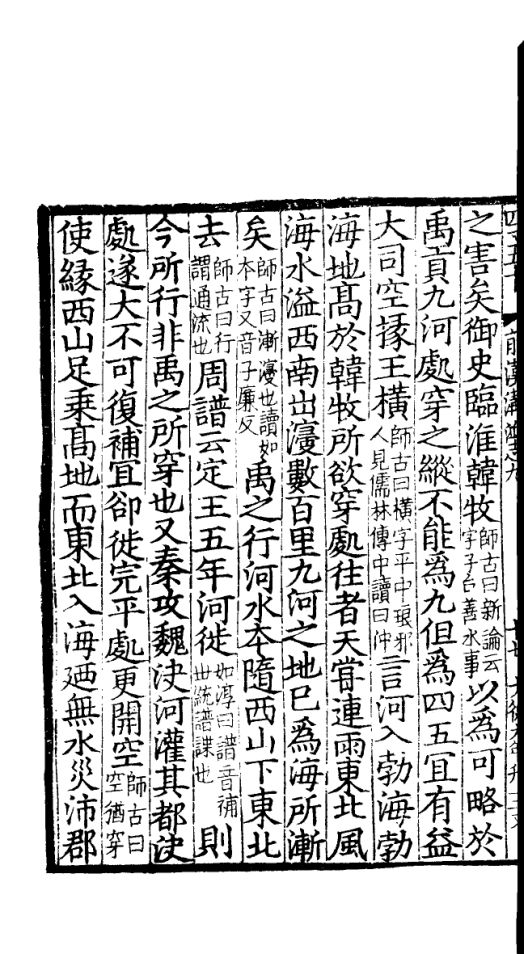 之害矣御史臨淮韓牧師古曰新論云字子台善水事以為可略於
禹貢九河處穿之縱不能為九但為四五冝有益
大司空掾王橫師古曰橫字平中琅邪人見儒林傳中讀曰仲言河入勃海勃
海地髙於韓牧所欲穿處往者天甞連雨東北風
海水溢西南出𭰖數百里九河之地已為海所漸
矣師古曰漸𭰖也讀如本字又音子廉反禹之行河水本隨西山下東北
去師古曰行謂通流也周譜云定王五年河徙如淳曰譜音補丗統譜諜也則
今所行非禹之所穿也又秦攻魏決河灌其都決
處遂大不可復補冝卻徙完平處更開空師古曰空猶穿
使緣西山足乗髙地而東北入海廼無水災沛郡